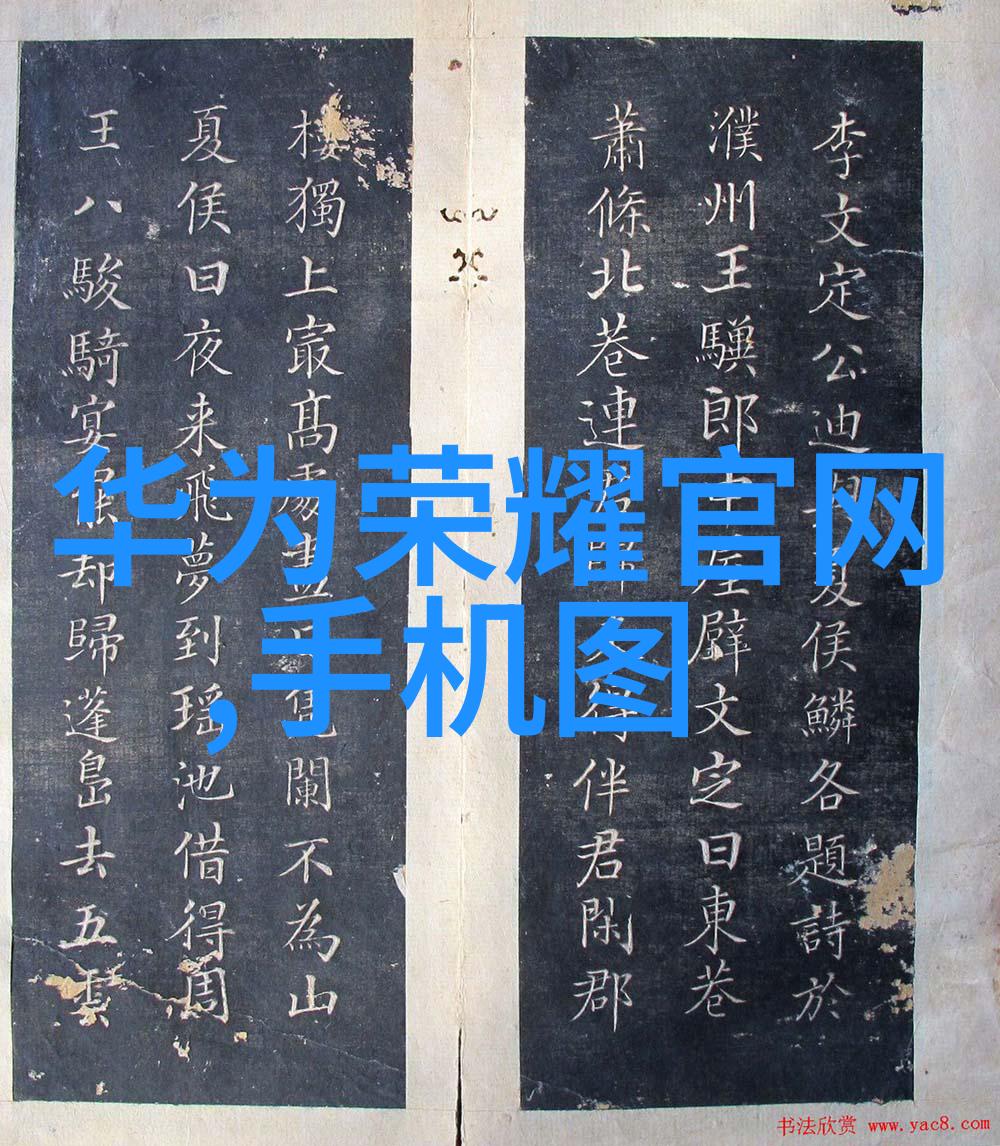 李文定公迪與夏侯鱗各題詩於
濮州王驥郎中屋壁文定曰東巷
蕭條北巷連君伴君閑郡
樓獨上冣髙處盡日凭闌不為山
夏侯曰夜来飛夢到瑶池借得周
王八駿騎宴罷却歸蓬島去五雲
华为荣耀官网
,手机图
书法欣赏 www.yac8.com